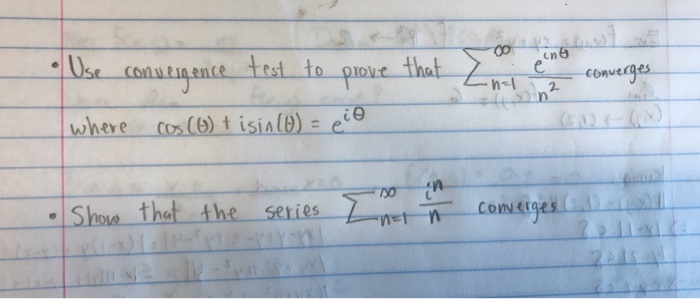 • Use convergence test to prove that ∑_{n=1}^{∞} e^{inθ}/n² converges
where cos(θ) + isin(θ) = e^{iθ}
• Show that the series ∑_{n=1}^{∞} i^n/n converges